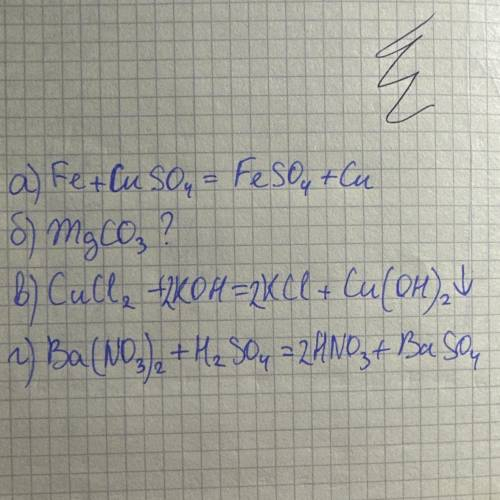 а) Fe + CuSO₄ = FeSO₄ + Cu
б) MgCO₃ ?
в) CuCl₂ + 2KOH = 2KCl + Cu(OH)₂↓
г) Ba(NO₃)₂ + H₂SO₄ = 2HNO₃ + BaSO₄